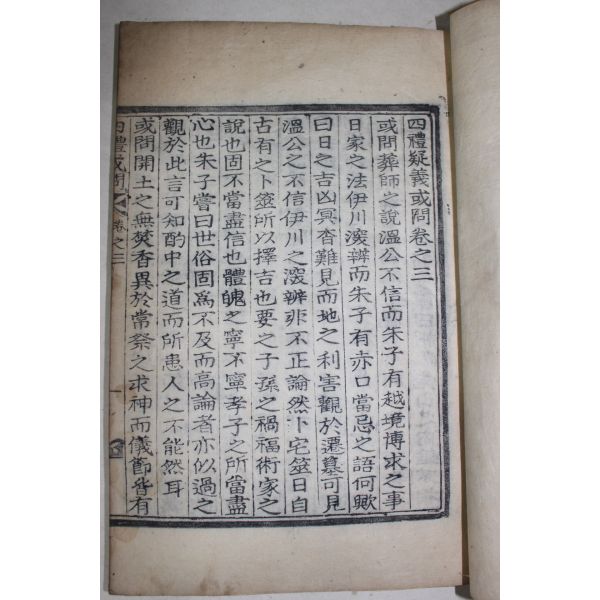 四禮疑義或問卷之三
或問葬師之說溫公不信而朱子有越境博求之事
日家之法伊川深辨而朱子有赤口當忌之語何歟
曰日之吉凶冥杳難見而地之利害觀於遷墓可見
溫公之不信伊川之深辨非不正論然卜宅筮日自
古有之卜筮所以擇吉也要之子孫之禍福術家之
說也固不當盡信也體魄之寧不寧孝子之所當盡
心也朱子嘗曰世俗固爲不及而高論者亦似過之
觀於此言可知酌中之道而所患人之不能然耳
或問開土之無焚香異於常祭之求神而儀節皆有
四禮或問 卷之三
一